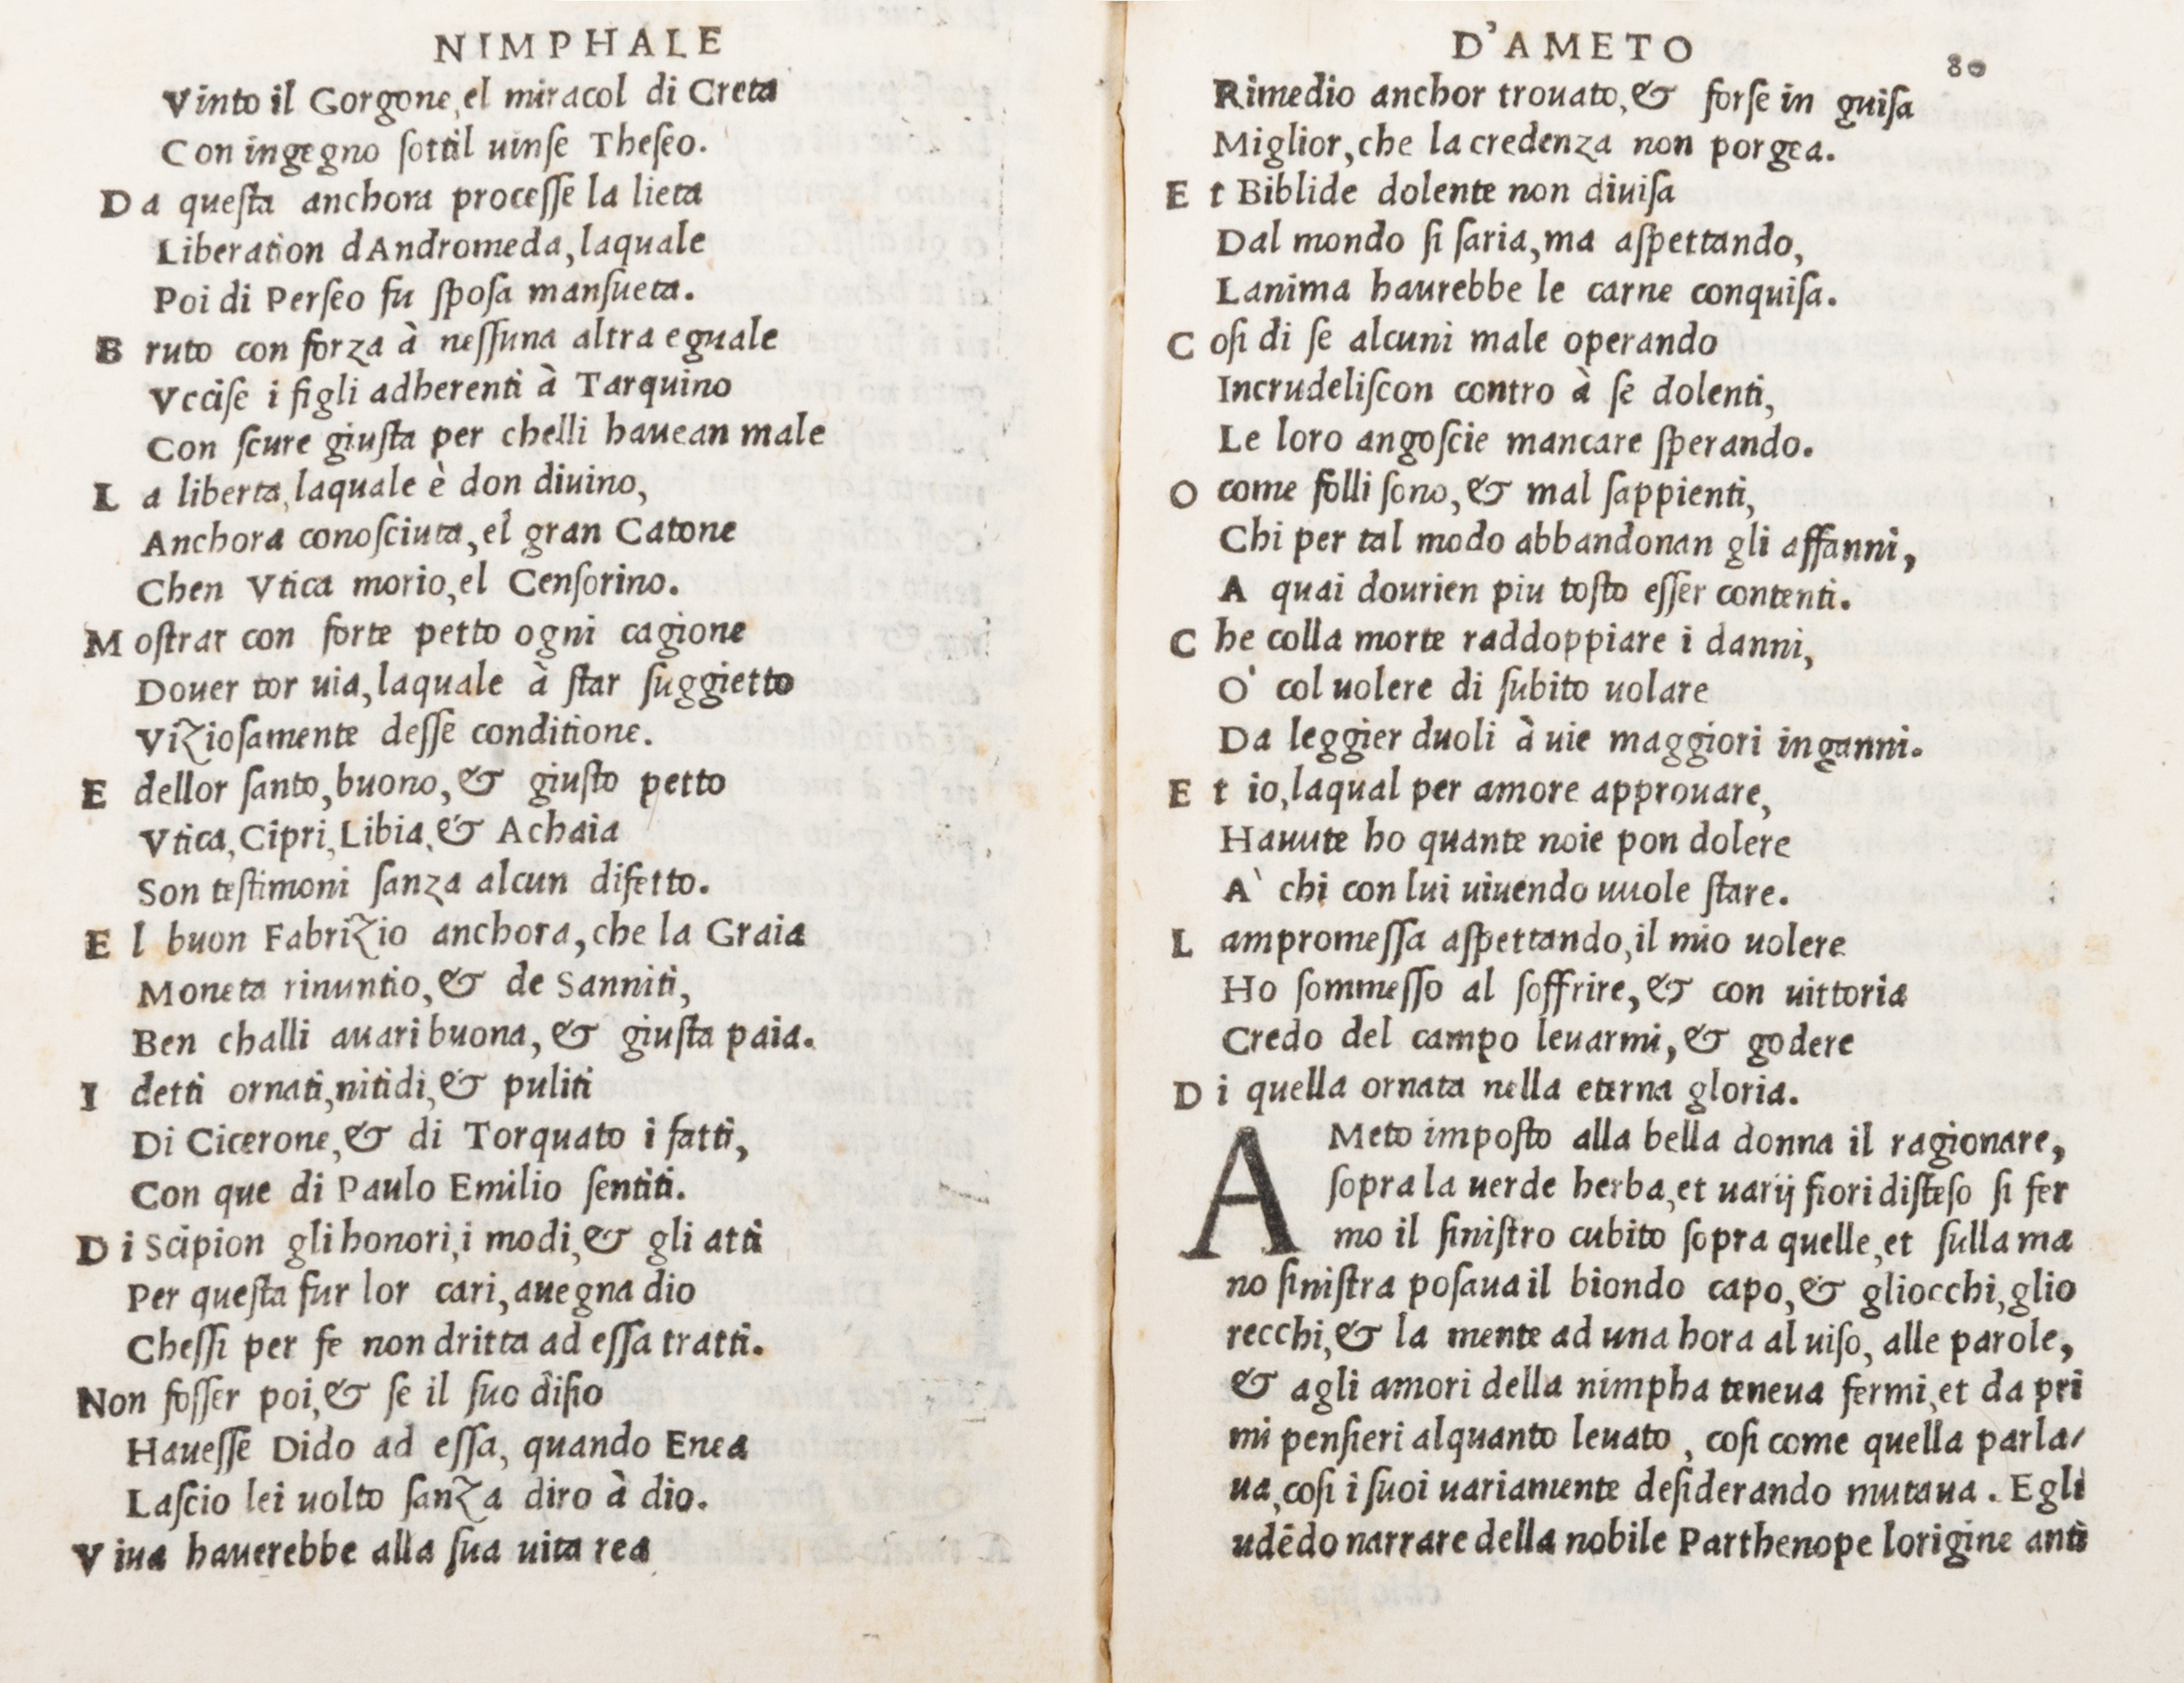 NIMPHALE
Vinto il Gorgone, el miracol di Creta
Con ingegno ſottil uinſe Theſeo.
D a queſta anchora proceſſe la lieta
Liberation dAndromeda, laquale
Poi di Perſeo fu ſpoſa manſueta.
B ruto con forza à neſſuna altra eguale
Vcciſe i figli adherenti à Tarquino
Con ſcure giuſta per chelli hauean male
L a liberta, laquale è don diuino,
Anchora conoſciuta, el gran Catone
Chen Vtica morio, el Cenſorino.
M oſtrar con forte petto ogni cagione
Douer tor uia, laquale à ſtar ſuggietto
Vizioſamente deſſe conditione.
E dellor ſanto, buono, & giuſto petto
Vtica, Cipri, Libia, & Achaia
Son teſtimoni ſanza alcun difetto.
E l buon Fabrizio anchora, che la Graia
Moneta rinuntio, & de Sanniti,
Ben challi auari buona, & giuſta paia.
I detti ornati, nitidi, & puliti
Di Cicerone, & di Torquato i fatti,
Con que di Paulo Emilio ſentiti.
D i Scipion gli honori, i modi, & gli atti
Per queſta fur lor cari, auegna dio
Cheſſi per fe non dritta ad eſſa tratti.
Non foſſer poi, & ſe il ſuo diſio
Haueſſe Dido ad eſſa, quando Enea
Laſcio lei uolto ſanza diro à dio.
V iua hauerebbe alla ſua uita rea
D'AMETO
80
Rimedio anchor trouato, & forſe in guiſa
Miglior, che la credenza non porgea.
E t Biblide dolente non diuiſa
Dal mondo ſi ſaria, ma aſpettando,
Lanima haurebbe le carne conquiſa.
C oſi di ſe alcuni male operando
Incrudeliſcon contro à ſe dolenti,
Le loro angoſcie mancare ſperando.
O come folli ſono, & mal ſappienti,
Chi per tal modo abbandonan gli affanni,
A quai dourien piu toſto eſſer contenti.
C he colla morte raddoppiare i danni,
O' col uolere di ſubito uolare
Da leggier duoli à uie maggiori inganni.
E t io, laqual per amore approuare,
Hauute ho quante noie pon dolere
A' chi con lui uiuendo uuole ſtare.
L ampromeſſa aſpettando, il mio uolere
Ho ſommeſſo al ſoffrire, & con uittoria
Credo del campo leuarmi, & godere
D i quella ornata nella eterna gloria.
AMeto impoſto alla bella donna il ragionare,
ſopra la uerde herba, et uarij fiori diſteſo ſi fer
mo il ſiniſtro cubito ſopra quelle, et ſulla ma
no ſiniſtra poſaua il biondo capo, & gliocchi, glio
recchi, & la mente ad una hora al uiſo, alle parole,
& agli amori della nimpha teneua fermi, et da pri
mi penſieri alquanto leuato, coſi come quella parla/
ua, coſi i ſuoi uariamente deſiderando mutaua. Egli
udēdo narrare della nobile Parthenope lorigine anti